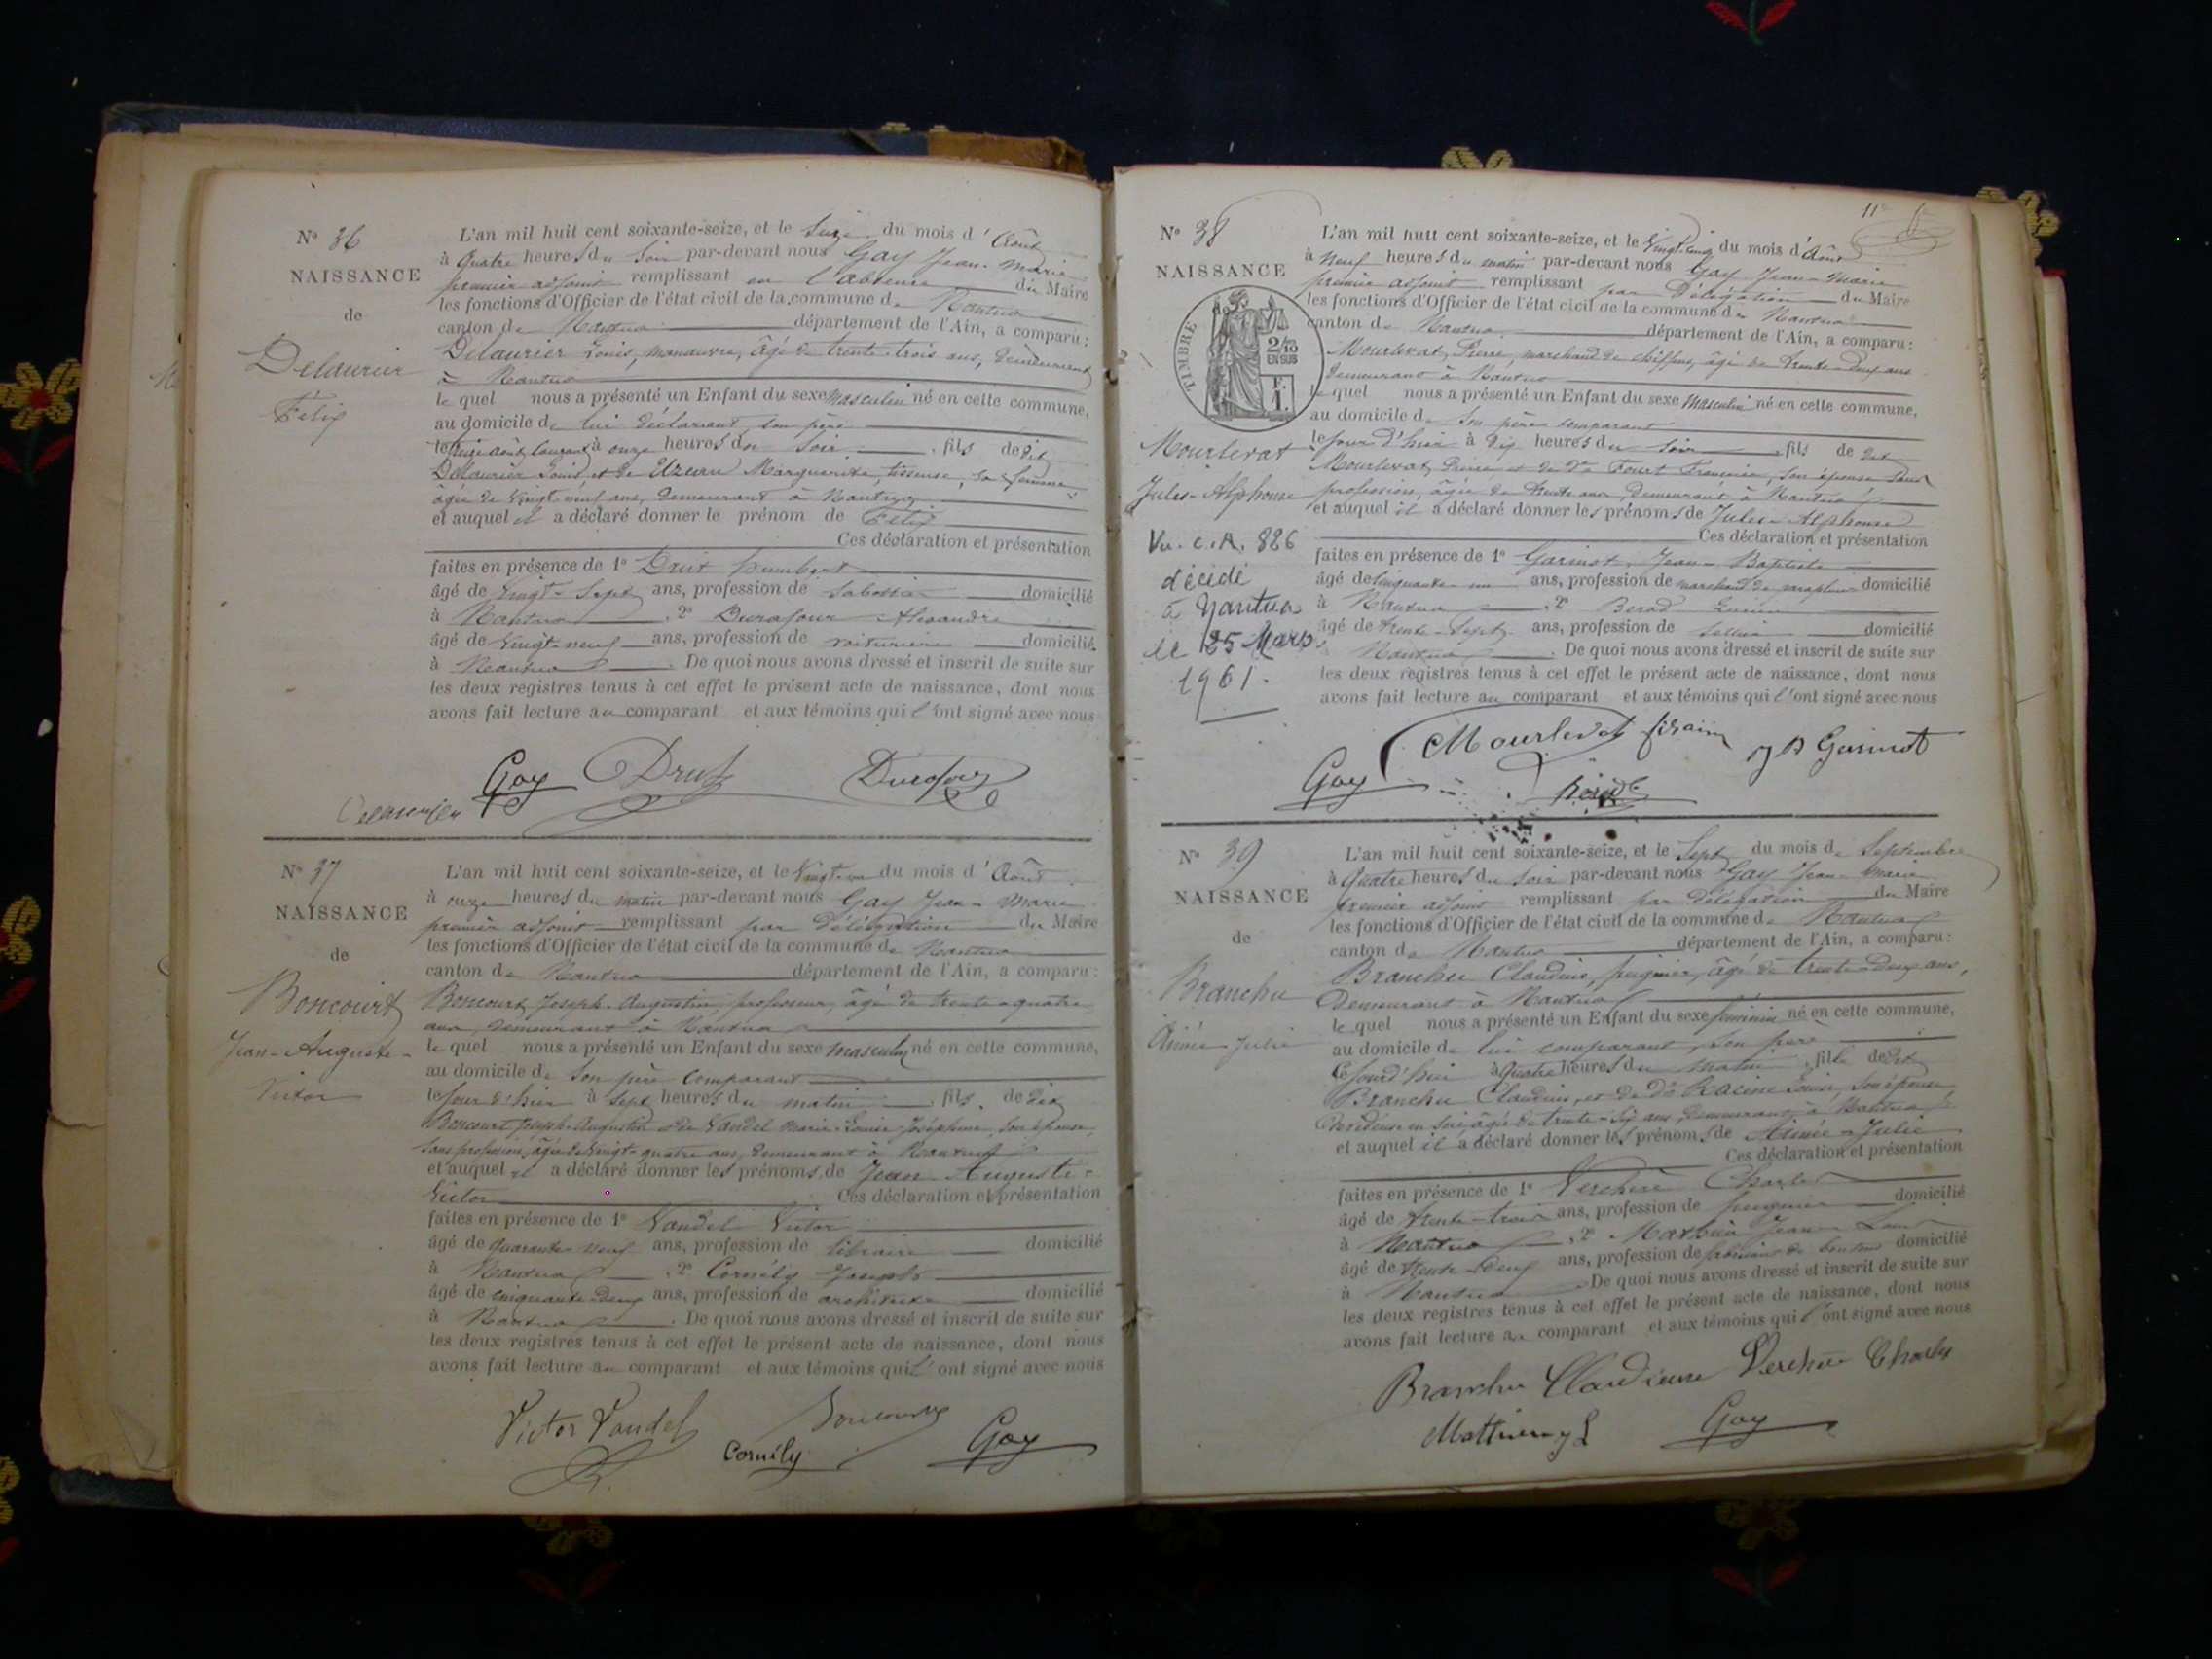 N° 36
NAISSANCE
de
Delaurier
Félix
L'an mil huit cent soixante-seize, et le Seize du mois d'Août
à Quatre heures du Soir par-devant nous Gay Jean-Marie
premier adjoint remplissant en l'absence du Maire
les fonctions d'Officier de l'état civil de la commune de Nantua
canton de Nantua département de l'Ain, a comparu :
Delaurier Louis, manœuvre, âgé de trente-trois ans, demeurant
à Nantua
le quel nous a présenté un Enfant du sexe masculin né en cette commune,
au domicile de lui déclarant, son père
le seize août courant à onze heures du soir, fils de dit
Delaurier Louis, et de Marguerite, tisseuse, sa femme,
âgée de Vingt-neuf ans, demeurant à Nantua
et auquel il a déclaré donner le prénom de Félix
Ces déclaration et présentation
faites en présence de 1° Drut humbert
âgé de Vingt-Sept ans, profession de Sabotier domicilié
à Nantua . 2° Durafour Alexandre
âgé de Vingt-neuf ans, profession de voiturier domicilié
à Nantua . De quoi nous avons dressé et inscrit de suite sur
les deux registres tenus à cet effet le présent acte de naissance, dont nous
avons fait lecture au comparant et aux témoins qui l'ont signé avec nous
Gay Drut Durafour
Delaurier
N° 37
NAISSANCE
de
Boncourt
Jean-Auguste-
Victor
L'an mil huit cent soixante-seize, et le Vingt-un du mois d'Août
à onze heures du matin par-devant nous Gay Jean-Marie
premier adjoint remplissant par délégation du Maire
les fonctions d'Officier de l'état civil de la commune de Nantua
canton de Nantua département de l'Ain, a comparu :
Boncourt Joseph-Augustin, professeur, âgé de trente-quatre
ans, demeurant à Nantua
le quel nous a présenté un Enfant du sexe masculin né en cette commune,
au domicile de son père comparant
le jour d'hier à Sept heures du matin, fils de dit
Boncourt Joseph-Augustin et de Vandel Marie-Louise-Joséphine, son épouse,
sans profession, âgée de Vingt-quatre ans, demeurant à Nantua
et auquel il a déclaré donner les prénoms de Jean-Auguste-
Victor Ces déclaration et présentation
faites en présence de 1° Vandel Victor
âgé de quarante-neuf ans, profession de libraire domicilié
à Nantua . 2° Cornély Joseph
âgé de cinquante-deux ans, profession de architecte domicilié
à Nantua . De quoi nous avons dressé et inscrit de suite sur
les deux registres tenus à cet effet le présent acte de naissance, dont nous
avons fait lecture au comparant et aux témoins qui l'ont signé avec nous
Victor Vandel Boncourt
Cornély Gay
11e
N° 38
NAISSANCE
TIMBRE
2/10
EN SUS
F.
1.
Mourlevat
Jules-Alphonse
Vu. C.A. 826
décédé
à Nantua
le 25 Mars
1961.
L'an mil huit cent soixante-seize, et le Vingt-cinq du mois d'Août
à neuf heures du matin par-devant nous Gay Jean-Marie
premier adjoint remplissant par Délégation du Maire
les fonctions d'Officier de l'état civil de la commune de Nantua
canton de Nantua département de l'Ain, a comparu :
Mourlevat, Pierre, marchand de chiffons, âgé de trente-deux ans
demeurant à Nantua
le quel nous a présenté un Enfant du sexe Masculin né en cette commune,
au domicile de son père comparant
le jour d'hier à dix heures du soir, fils de dit
Mourlevat, Pierre et de De Fourt Françoise, son épouse sans
profession, âgée de trente ans, demeurant à Nantua
et auquel il a déclaré donner les prénoms de Jules-Alphonse
Ces déclaration et présentation
faites en présence de 1° Garinot, Jean-Baptiste
âgé de Cinquante-un ans, profession de marchand de domicilié
à Nantua . 2° Berod Lucien
âgé de trente-Sept ans, profession de sellier domicilié
à Nantua . De quoi nous avons dressé et inscrit de suite sur
les deux registres tenus à cet effet le présent acte de naissance, dont nous
avons fait lecture au comparant et aux témoins qui l'ont signé avec nous
Mourlevat J B Garinot
Gay
N° 39
NAISSANCE
de
Branchu
Aimée-Julie
L'an mil huit cent soixante-seize, et le Sept du mois de Septembre
à Quatre heures du Soir par-devant nous Gay Jean-Marie
premier adjoint remplissant par délégation du Maire
les fonctions d'Officier de l'état civil de la commune de Nantua
canton de Nantua département de l'Ain, a comparu :
Branchu Claudius, peignier, âgé de trente-deux ans,
demeurant à Nantua
le quel nous a présenté un Enfant du sexe féminin né en cette commune,
au domicile de lui comparant, son père
Cejourd'hui à Quatre heures du matin, fille de dit
Branchu Claudius, et de De Racine Louise, son épouse
en soie âgée de trente-six ans, demeurant à Nantua
et auquel il a déclaré donner les prénoms de Aimée-Julie
Ces déclaration et présentation
faites en présence de 1° Verchère Charles
âgé de trente-trois ans, profession de peignier domicilié
à Nantua . 2° Mathieu Jean-Louis
âgé de trente-deux ans, profession de fabricant de boutons domicilié
à Nantua . De quoi nous avons dressé et inscrit de suite sur
les deux registres tenus à cet effet le présent acte de naissance, dont nous
avons fait lecture au comparant et aux témoins qui l'ont signé avec nous
Branchu Claudius Verchère Charles
Mathieu J L Gay